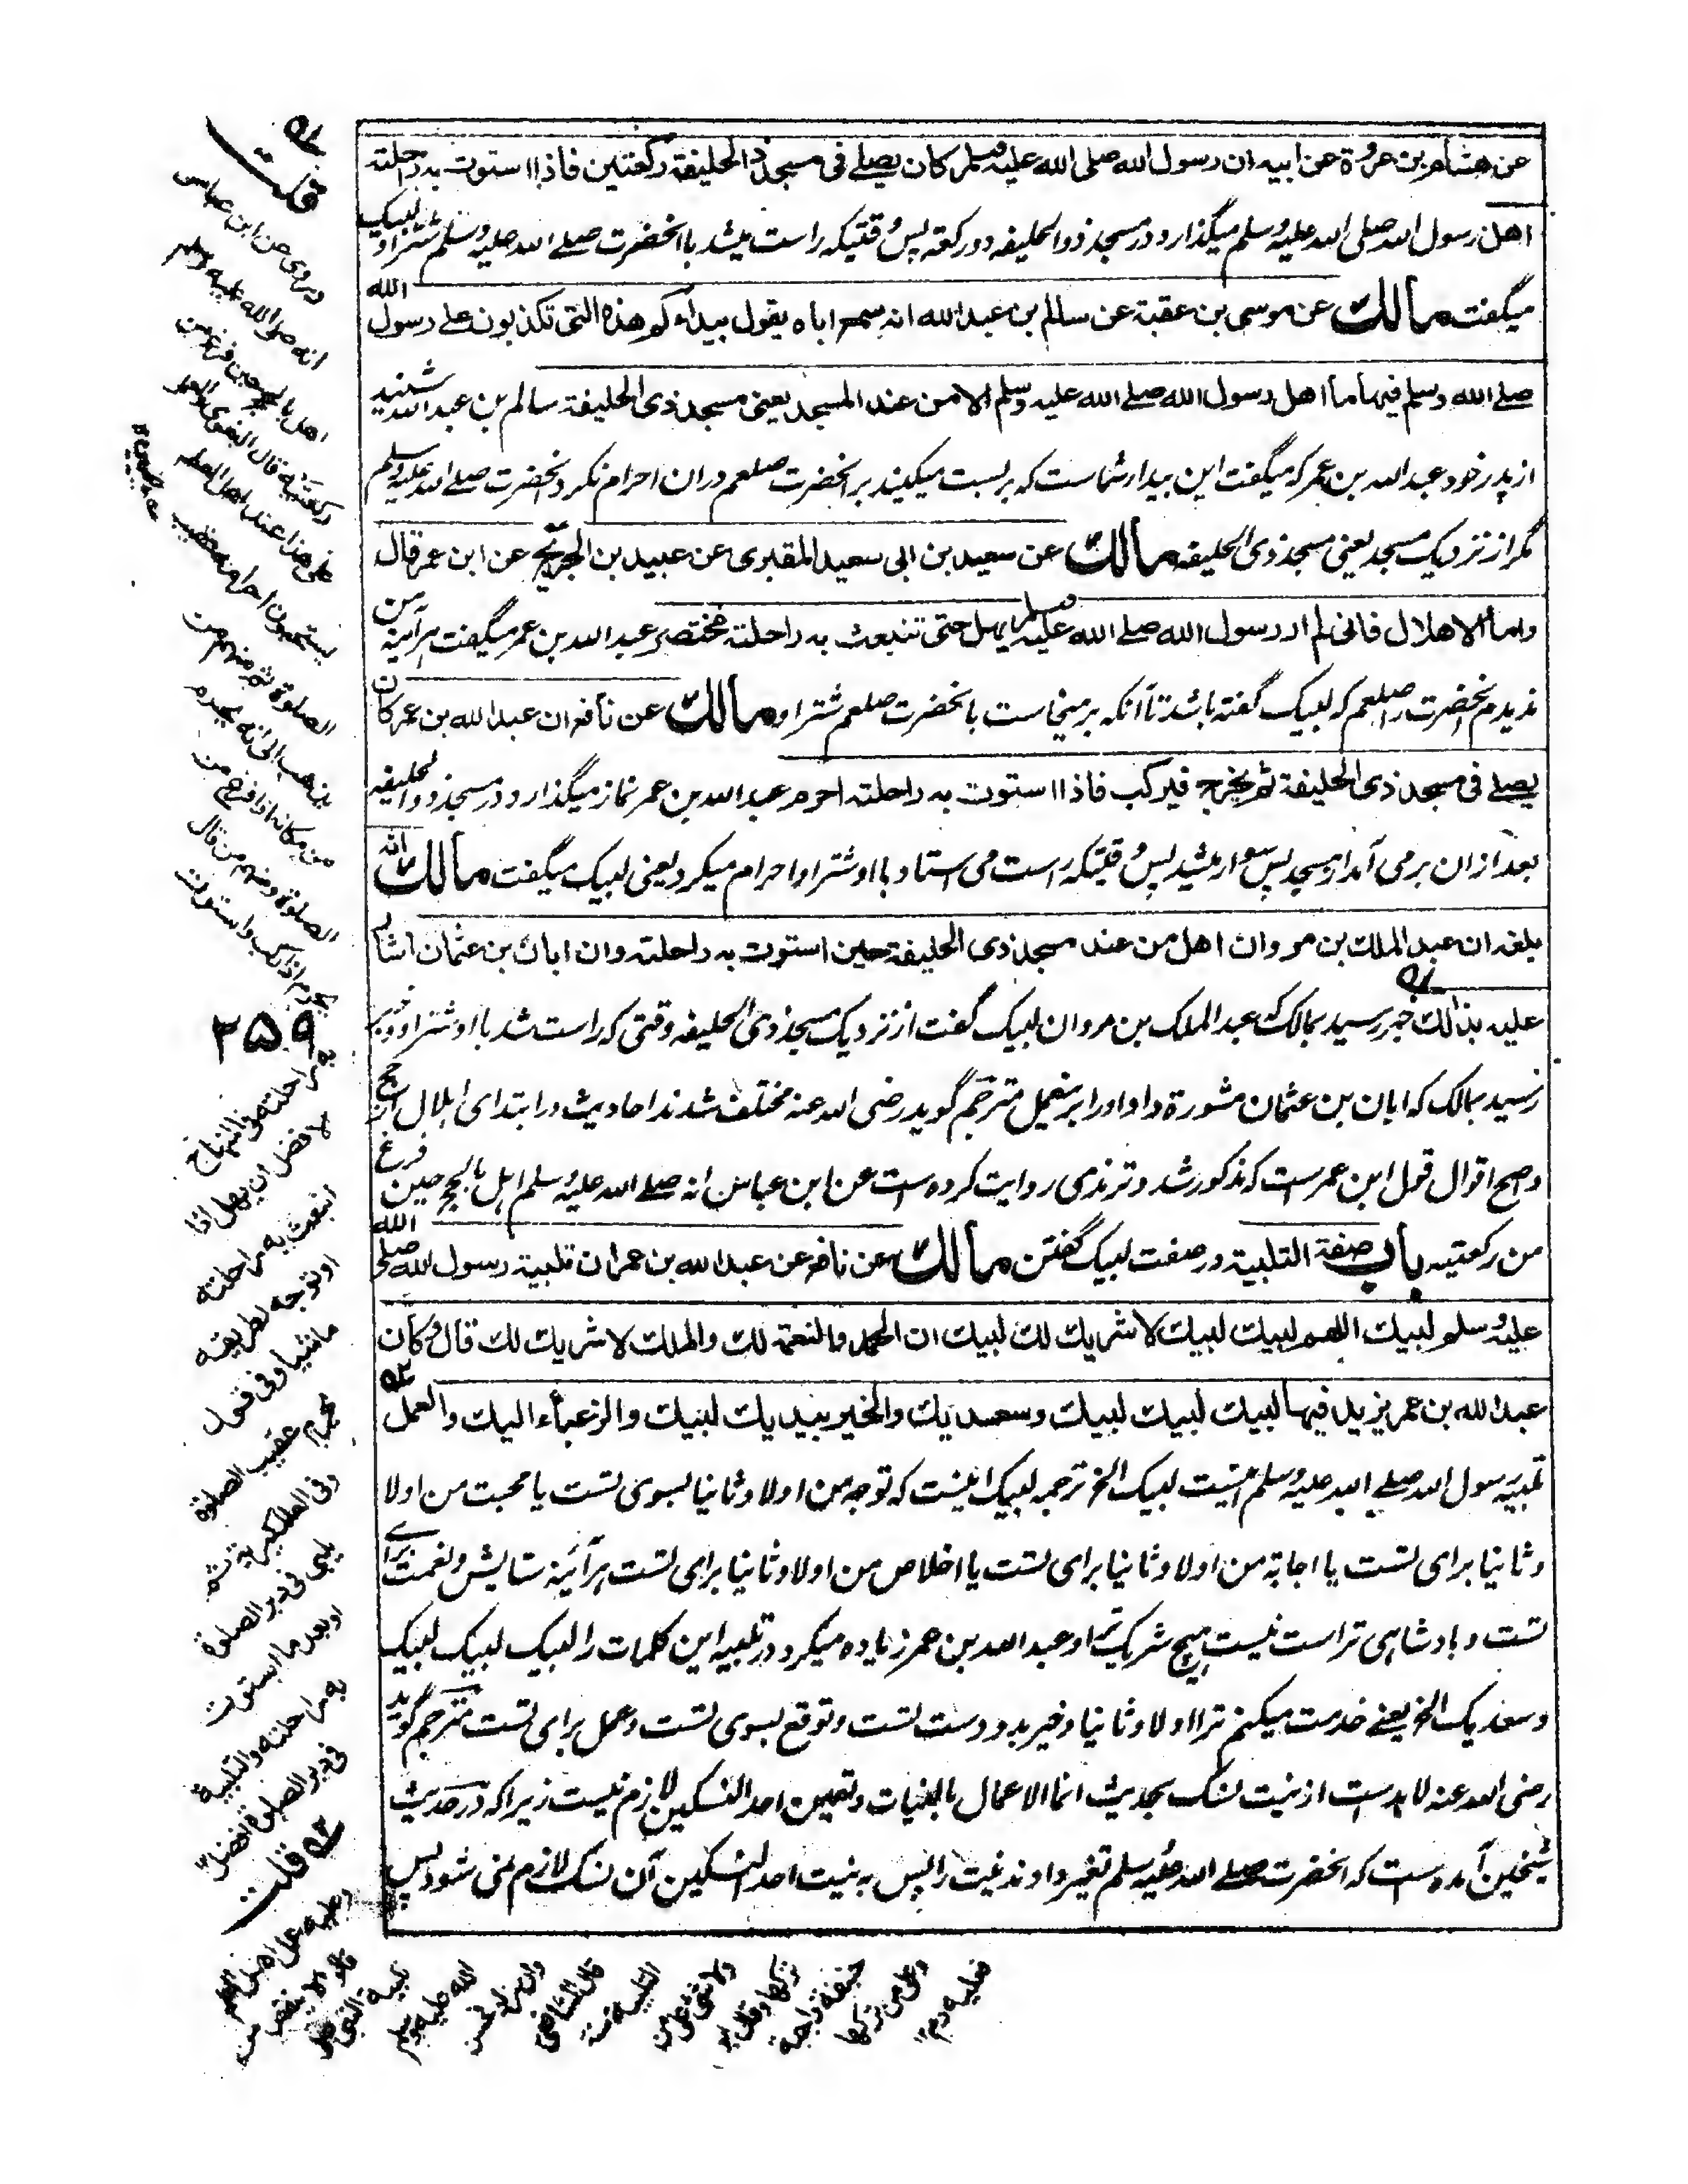 عن هشام بن عروة عن ابيه ان رسول الله صلى الله عليه وسلم كان يصلے فى مسجد ذى الحليفة ركعتين فاذا استوت به راحلته
اهل رسول الله صلى الله عليه وسلم میگذارد در مسجد ذو الحلیفه دو رکعة پس وقتیکه راست میشد با انحضرت صلے الله علیه وسلم شتر او لبیک
میگفت مالك عن موسى بن عقبة عن سالم بن عبد الله انه سمع اباه يقول بيداءكم هذه التى تكذبون على رسول الله
صلے الله وسلم فيها ما اهل رسول الله صلے الله عليه وسلم الا من عند المسجد يعنى مسجد ذى الحليفة سالم بن عبد الله شنید
از پدر خود عبد الله بن عمر که میگفت این بیدار شماست که بر بست میکنید بر انحضرت صلعم دران احرام نکرد انحضرت صلے الله علیه وسلم
مگر از نزدیک مسجد یعنی مسجد ذی الحلیفه مالك عن سعيد بن ابى سعيد المقبرى عن عبيد بن الجريج عن ابن عمر قال
واما الاهلال فانى لم ار رسول الله صلے الله عليه وسلم يهل حتى تنبعث به راحلته مختصر عبد الله بن عمر میگفت هرآئینه من
ندیدم انحضرت را صلعم که لبیک گفته باشد تا آنکه برمیخاست با نحضرت صلعم شتر او مالك عن نافع ان عبد الله بن عمر كان
يصلے فى مسجد ذى الحليفة ثم يخرج فيركب فاذا استوت به راحلته احرم عبد الله بن عمر نماز میگذارد در مسجد ذو الحلیفه
بعد ازان برمی آمد از مسجد پس سوار میشد پس وقتیکه راست می استاد با او شتر او احرام میکرد یعنی لبیک میگفت مالك انه
بلغه ان عبد الملك بن مروان اهل من عند مسجد ذى الحليفة حين استوت به راحلته وان ابان بن عثمان اشار
عليه بذالك خبر رسید بمالک که عبد الملک بن مروان لبیک گفت از نزدیک مسجد ذی الحلیفه وقتی که راست شد با او شتر او و خبر
رسید بمالک که ابان بن عثمان مشورة داد او را بر ینعمل مترجم گوید رضی الله عنه مختلف شدند احادیث در ابتدای اهلال از حج
و اصح اقوال قول ابن عمر ست که مذکور شد و ترمذی روایت کرده است عن ابن عباس انه صلے الله علیه وسلم اهل بالحج حین فرغ
من ركعتيه باب صفة التلبية در صفت لبیک گفتن مالك عن نافع عن عبد الله بن عمر ان تلبية رسول الله صلى الله
عليه وسلم لبيك اللهم لبيك لبيك لا شريك لك لبيك ان الحمد والنعمة لك والملك لا شريك لك قال وكان
عبد الله بن عمر يزيد فيها لبيك لبيك لبيك وسعديك والخير بيديك لبيك والرغباء اليك والعمل
تلبیه رسول الله صلے الله علیه وسلم اینست لبیک الخ ترجمه لبیک اینست که توجه من اولا و ثانیا بسوی تست یا محبت من اولا
و ثانیا برای تست یا اجابة من اولا و ثانیا برای تست یا اخلاص من اولا و ثانیا برای تست هرآئینه ستایش و نعمت برای
تست و بادشاهی تراست نیست هیچ شریک ترا و عبد الله بن عمر زیاده میکرد در تلبیه این کلمات را لبیک لبیک لبیک
وسعدیک الخ یعنے خدمت میکنم ترا اولا و ثانیا و خیر بدو دست تست و توقع بسوی تست و عمل برای تست مترجم گوید
رضی الله عنه لابدست از نیت نسک بحدیث انما الاعمال بالنیات و تعیین احد النسکین لازم نیست زیرا که در حدیث
شیخین آمده ست که انحضرت صلے الله علیه وسلم تغیر دادند نیت را پس به نیت احد النسکین آن نسک لازم نمی شود پس
قلت
وروى عن ابن عباس
انه صلى الله عليه وسلم
اهل بالحج حين فرغ من
ركعتيه قال البغوى والعمل
على هذا عند اهل العلم
يستحبون احرامه عقيب
الصلوة ثم منهم من
يذهب الى انه يحرم
من مكانه اذا فرغ من
الصلوة ومنهم من قال
يحرم اذا ركب واستوت
۲۵۹
به راحلته وفى المنهاج
الافضل ان يهل اذا
انبعثت به راحلته
او توجه لطريقه
ماشيا وفى قول
يحرم عقيب الصلوة
وفى العالمكيرية ثم
يلبى فى دبر الصلوة
او بعد ما استوت
به راحلته والتلبية
فى دبر الصلوة افضل
قلت
وعليه عمل اهل العلم
قالوا لا ينقص من
تلبية النبى صلى
الله عليه وسلم
وان زاد فحسن
قال الشافعى
التلبية سنة
ولا شئ على من
تركها وقال ابو
حنيفة واجبة
وعلى من تركها
فعليه دم